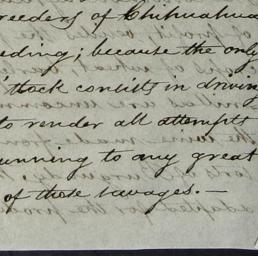 reeders of Chihuahua
eding; because the only
stock consists in driving
to render all attempts
unning to any great
of those savages. —